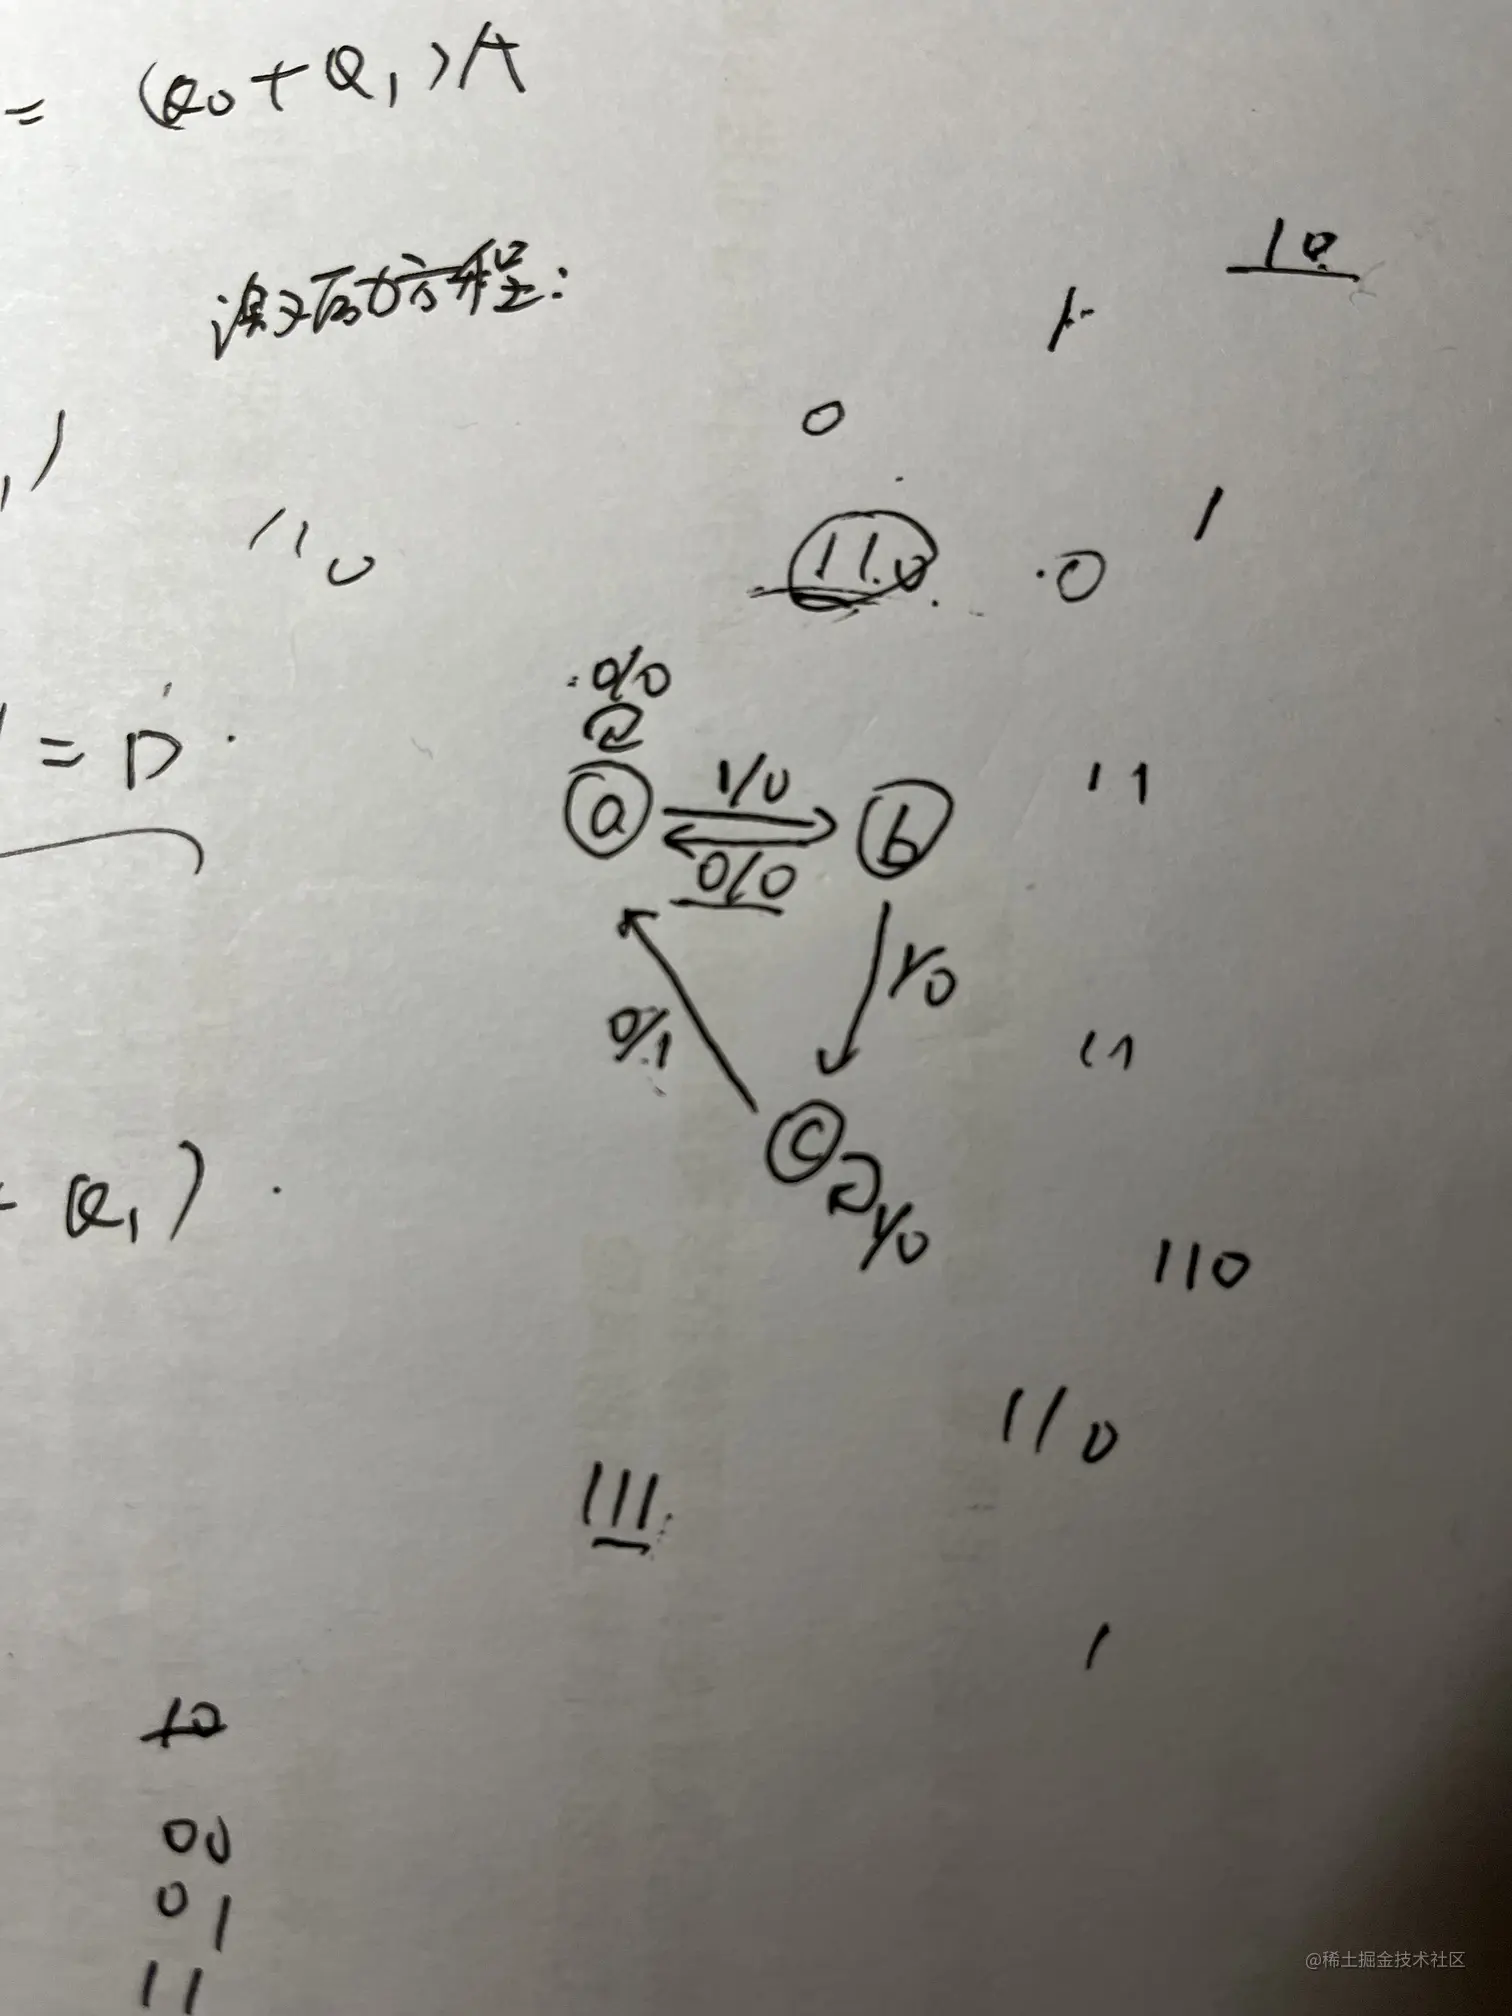 = (Q₀ + Q₁)A
10
1
0
方程:
1)
110
110
0
1
0/0
= D
a
1/0
b
11
0/0
1/0
0/1
11
c
Q₁)
1/0
110
110
111
1
10
00
01
11
@稀土掘金技术社区